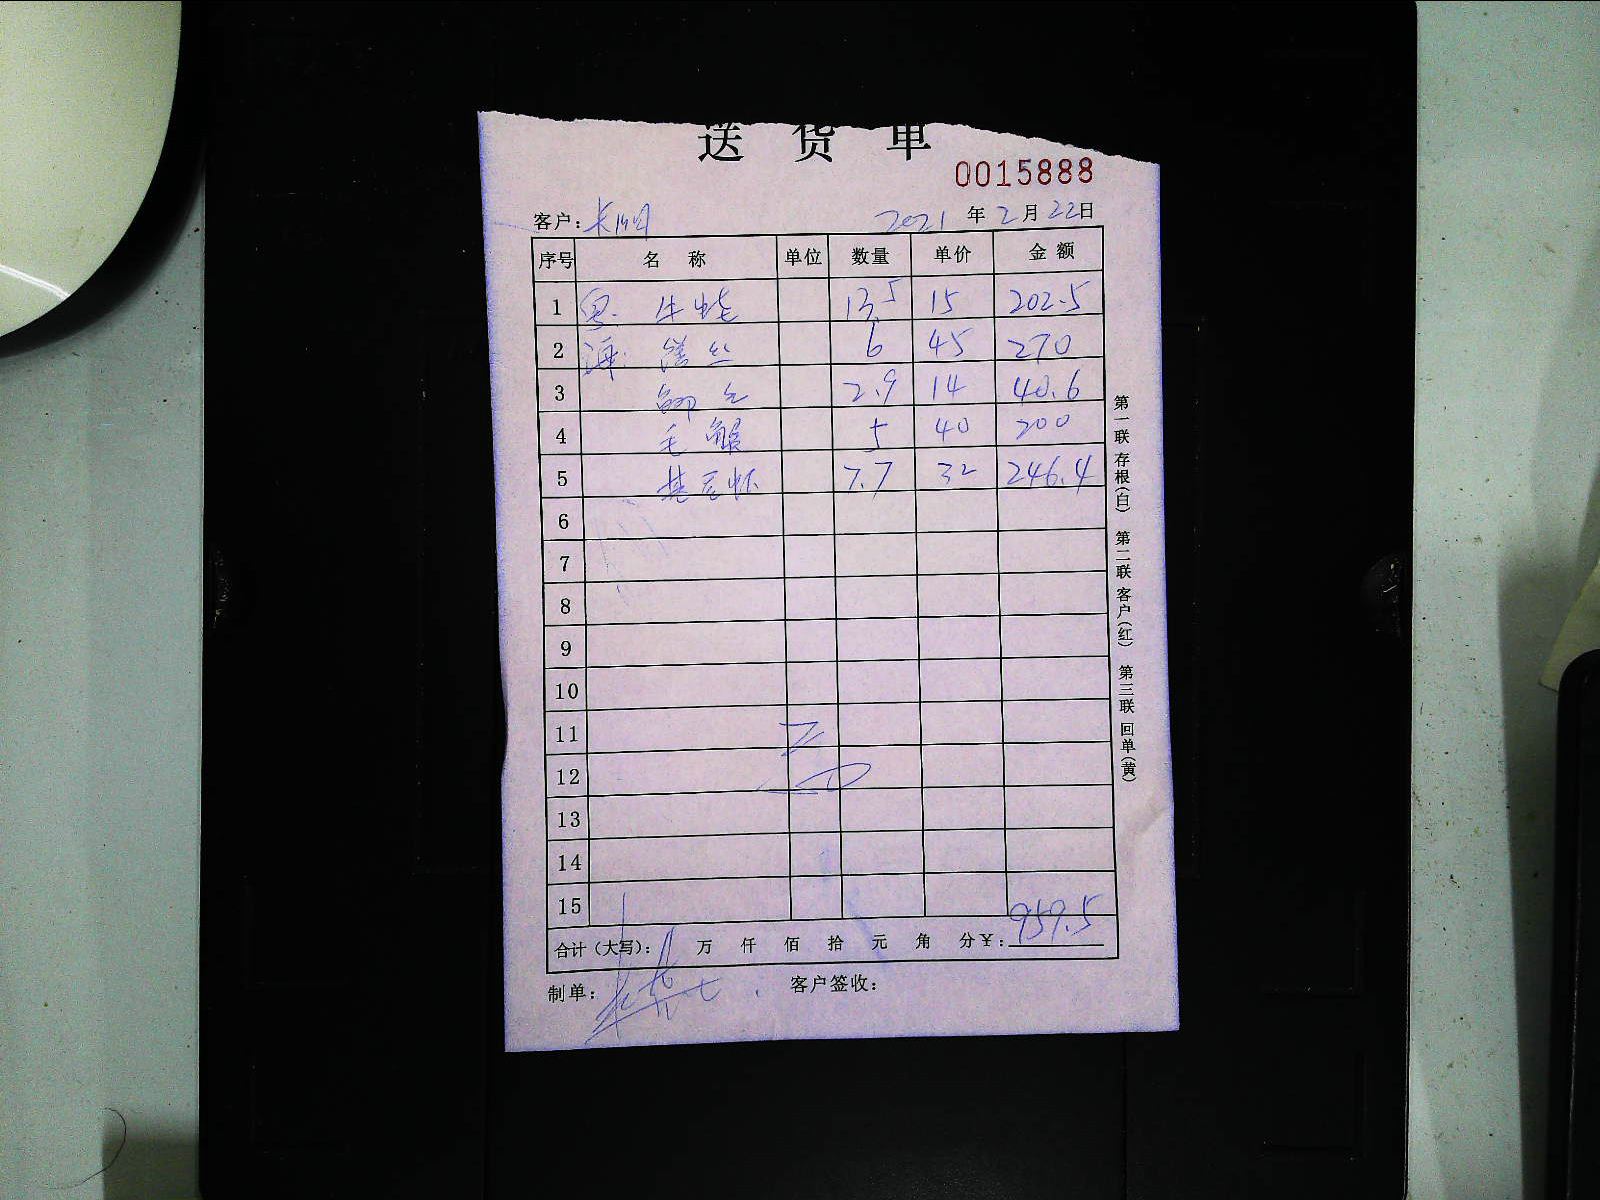 送货单
0015888
客户: 长 2021年2月22日
序号 名称 单位 数量 单价 金额
1 粤. 牛蛙 13.5 15 202.5
2 海. 丝 6 45 270
3 2.9 14 40.6
4 毛蟹 5 40 200
5 基尾虾 7.7 32 246.4
6
7
8
9
10
11
12
13
14
15
合计(大写): 万 仟 佰 拾 元 角 分 ¥: 959.5
制单: 客户签收:
第一联 存根(白) 第二联 客户(红) 第三联 回单(黄)